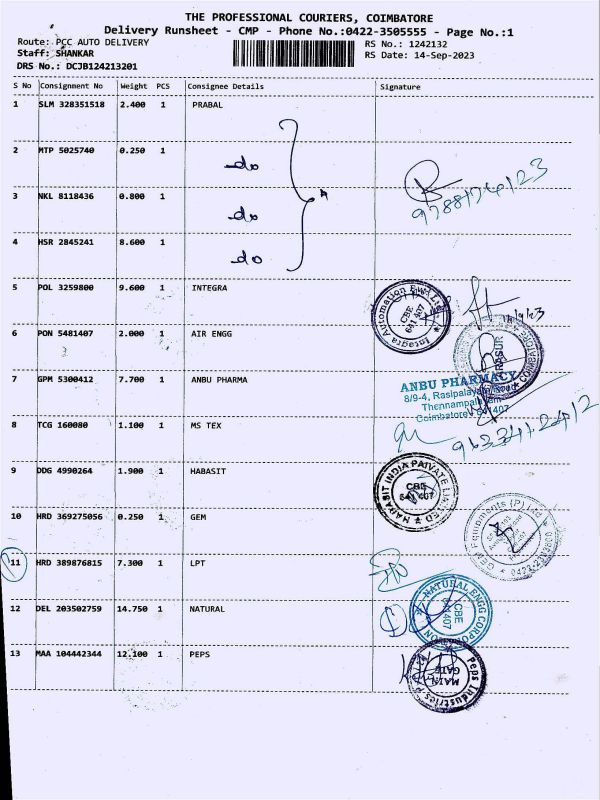 THE PROFESSIONAL COURIERS, COIMBATORE
Delivery Runsheet - CMP - Phone No.:0422-3505555 - Page No.:1
Route: PCC AUTO DELIVERY
RS No.: 1242132
Staff: SHANKAR
RS Date: 14-Sep-2023
DRS No.: DCJB124213201
S No Consignment No Weight PCS Consignee Details Signature
1 SLM 328351518 2.400 1 PRABAL
2 MTP 5025740 0.250 1 do
3 NKL 8118436 0.800 1 do
4 HSR 2845241 8.600 1 do
5 POL 3259800 9.600 1 INTEGRA
Integra Automation Pvt Ltd
CBE
641 407
6 PON 5481407 2.000 1 AIR ENGG
7 GPM 5300412 7.700 1 ANBU PHARMA
ANBU PHARMACY
8/9-4, Rasipalayam Road
Thennampalayam
Coimbatore 641407
8 TCG 160080 1.100 1 MS TEX
9 DDG 4990264 1.900 1 HABASIT
HABASIT INDIA PRIVATE LIMITED
CBE
641 407
10 HRD 369275056 0.250 1 GEM
GEM Equipments (P) Ltd
11 HRD 389876815 7.300 1 LPT
12 DEL 203502759 14.750 1 NATURAL
NATURAL ENGG CORPORATION
CBE
641 407
13 MAA 104442344 12.100 1 PEPS
Peps Industries
MAIN
GATE